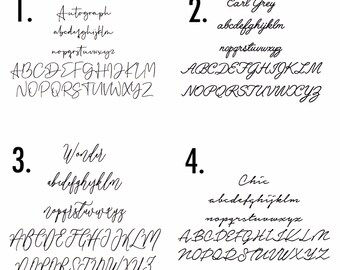 1.
Autograph
abcdefghijklm
nopqrstuvwxyz
ABCDEFGHIJKLM
NOPQRSTUVWXYZ
2.
Earl Grey
abcdefghijklm
nopqrstuvwxyz
ABCDEFGHIJKLM
NOPQRSTUVWXYZ
3.
Wonder
abcdefghijklm
nopqrstuvwxyz
ABCDEFGHIJKLM
NOPQRSTUVWXYZ
4.
Chic
abcdefghijklm
nopqrstuvwxyz
ABCDEFGHIJKLM
NOPQRSTUVWXYZ